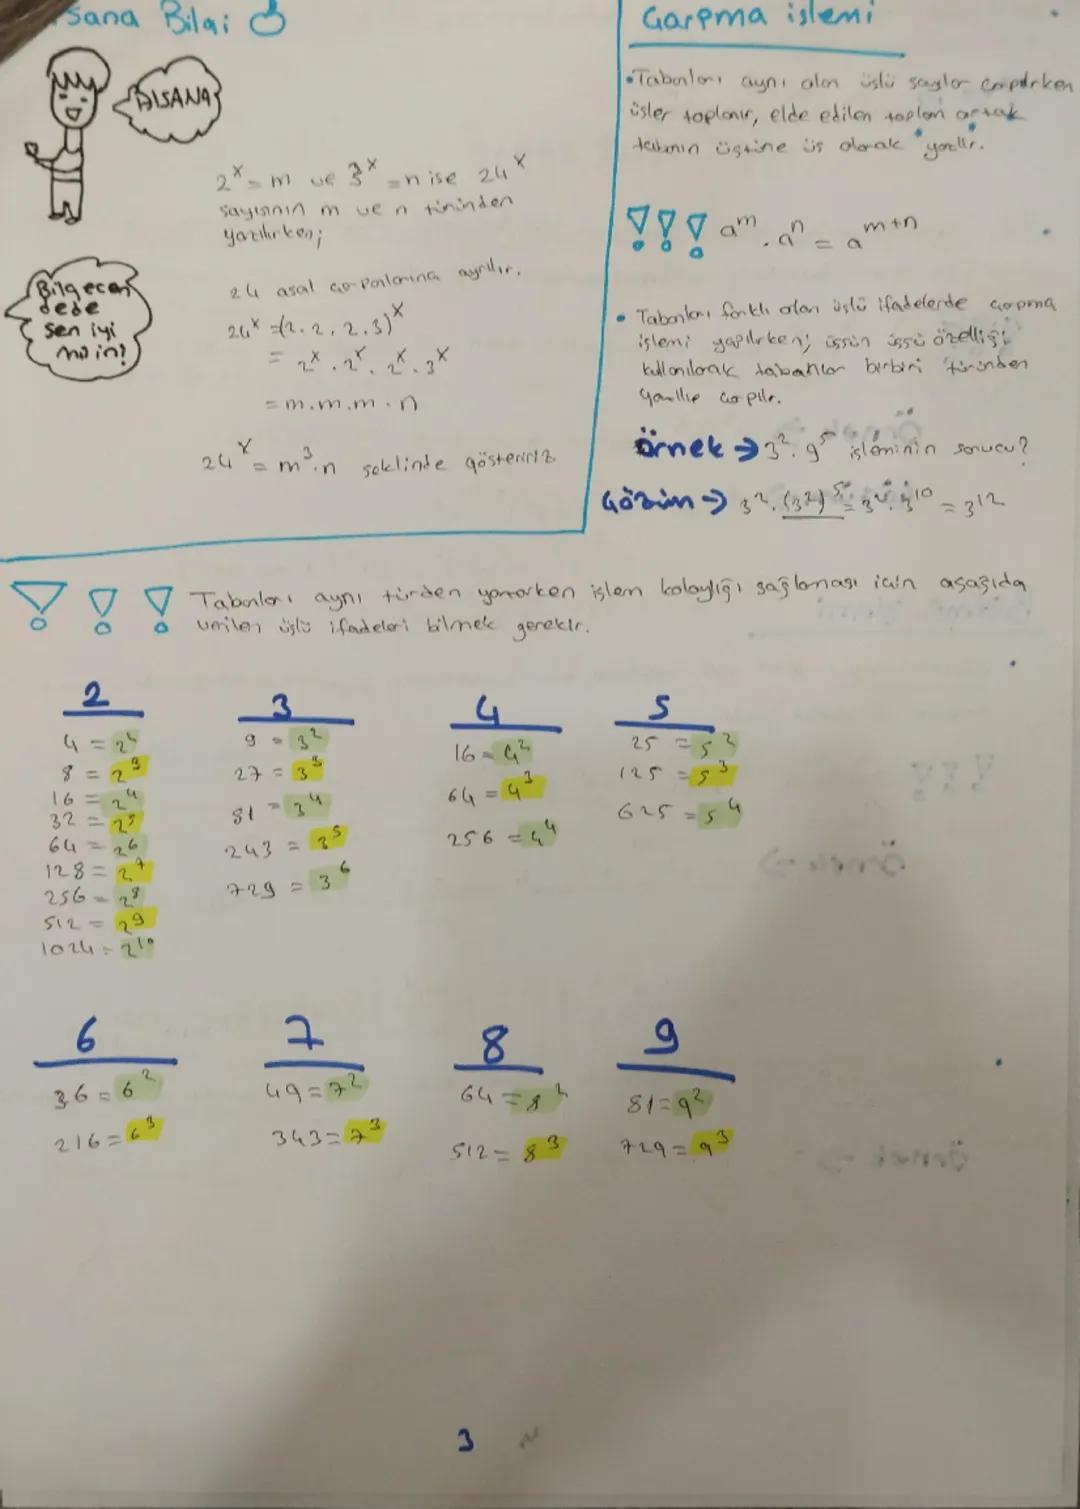 Sana Bilgi
AlSANA
2^x = m ve 3^x = n ise 24^x
sayısının m ve n türünden
yazılırken;
24 asal çarpanlarına ayrılır.
24^x = (2.2.2.3)^x
= 2^x . 2^x . 2^x . 3^x
= m.m.m.n
24^x = m^3.n şeklinde gösteririz
Bilgecan
dede
sen iyi
mi
Çarpma işlemi
• Tabanları aynı olan üslü sayılar çarpılırken
üsler toplanır, elde edilen toplam ortak
tabanın üstüne üs olarak yazılır.
!!! a^m . a^n = a^m+n
• Tabanları farklı olan üslü ifadelerde çarpma
işlemi yapılırken; üssün üssü özelliği
kullanılarak tabanlar birbiri türünden
yazılıp çarpılır.
Örnek → 3^2 . 9^5 işleminin sonucu?
Çözüm → 3^2 . (3^2)^5 = 3^2 . 3^10 = 3^12
!!! Tabanları aynı türden yazarken işlem kolaylığı sağlaması için aşağıda
verilen üslü ifadeleri bilmek gerekir.
2
4 = 2^2
8 = 2^3
16 = 2^4
32 = 2^5
64 = 2^6
128 = 2^7
256 = 2^8
512 = 2^9
1024 = 2^10
3
9 = 3^2
27 = 3^3
81 = 3^4
243 = 3^5
729 = 3^6
4
16 = 4^2
64 = 4^3
256 = 4^4
5
25 = 5^2
125 = 5^3
625 = 5^4
6
36 = 6^2
216 = 6^3
7
49 = 7^2
343 = 7^3
8
64 = 8^2
512 = 8^3
9
81 = 9^2
729 = 9^3
3